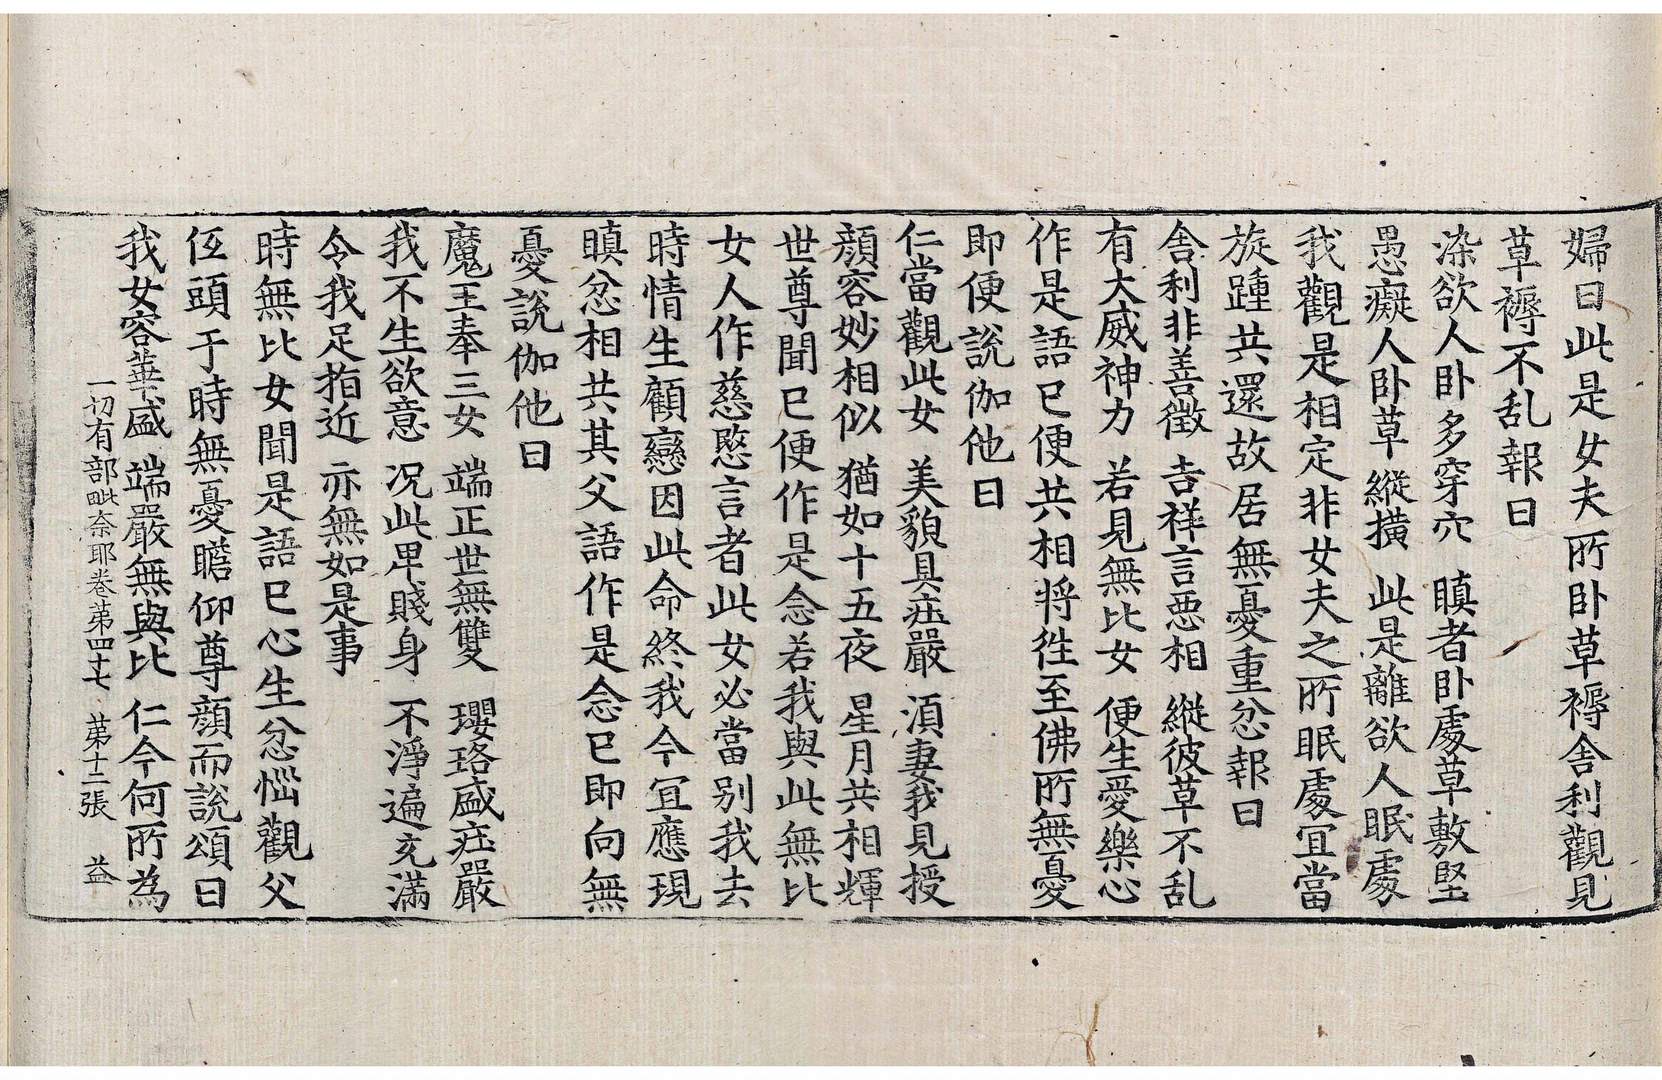 婦曰此是女夫所卧草褥舍利觀見
草褥不乱報曰
染欲人卧多穿穴　瞋者卧處草敷堅
愚癡人卧草縱横　此是離欲人眠處
我觀是相定非女夫之所眠處宜當
旋踵共還故居無憂重忿報曰
舍利非善徵　吉祥言惡相　縱彼草不乱
有大威神力　若見無比女　便生愛樂心
作是語已便共相將徃至佛所無憂
即便說伽他曰
仁當觀此女　美貌具庄嚴　湏妻我見授
顔容妙相似　猶如十五夜　星月共相輝
世尊聞已便作是念若我與此無比
女人作慈愍言者此女必當別我去
時情生顧戀因此命終我今宜應現
瞋忿相共其父語作是念已即向無
憂說伽他曰
魔王奉三女　端正世無雙　瓔珞盛庄嚴
我不生欲意　况此卑賤身　不淨遍充滿
令我足指近　亦無如是事
時無比女聞是語已心生忿惱觀父
仾頭于時無憂瞻仰尊顔而說頌曰
我女容華盛　端嚴無與比　仁今何所為
一切有部毗奈耶卷第四十七　第十二張　益